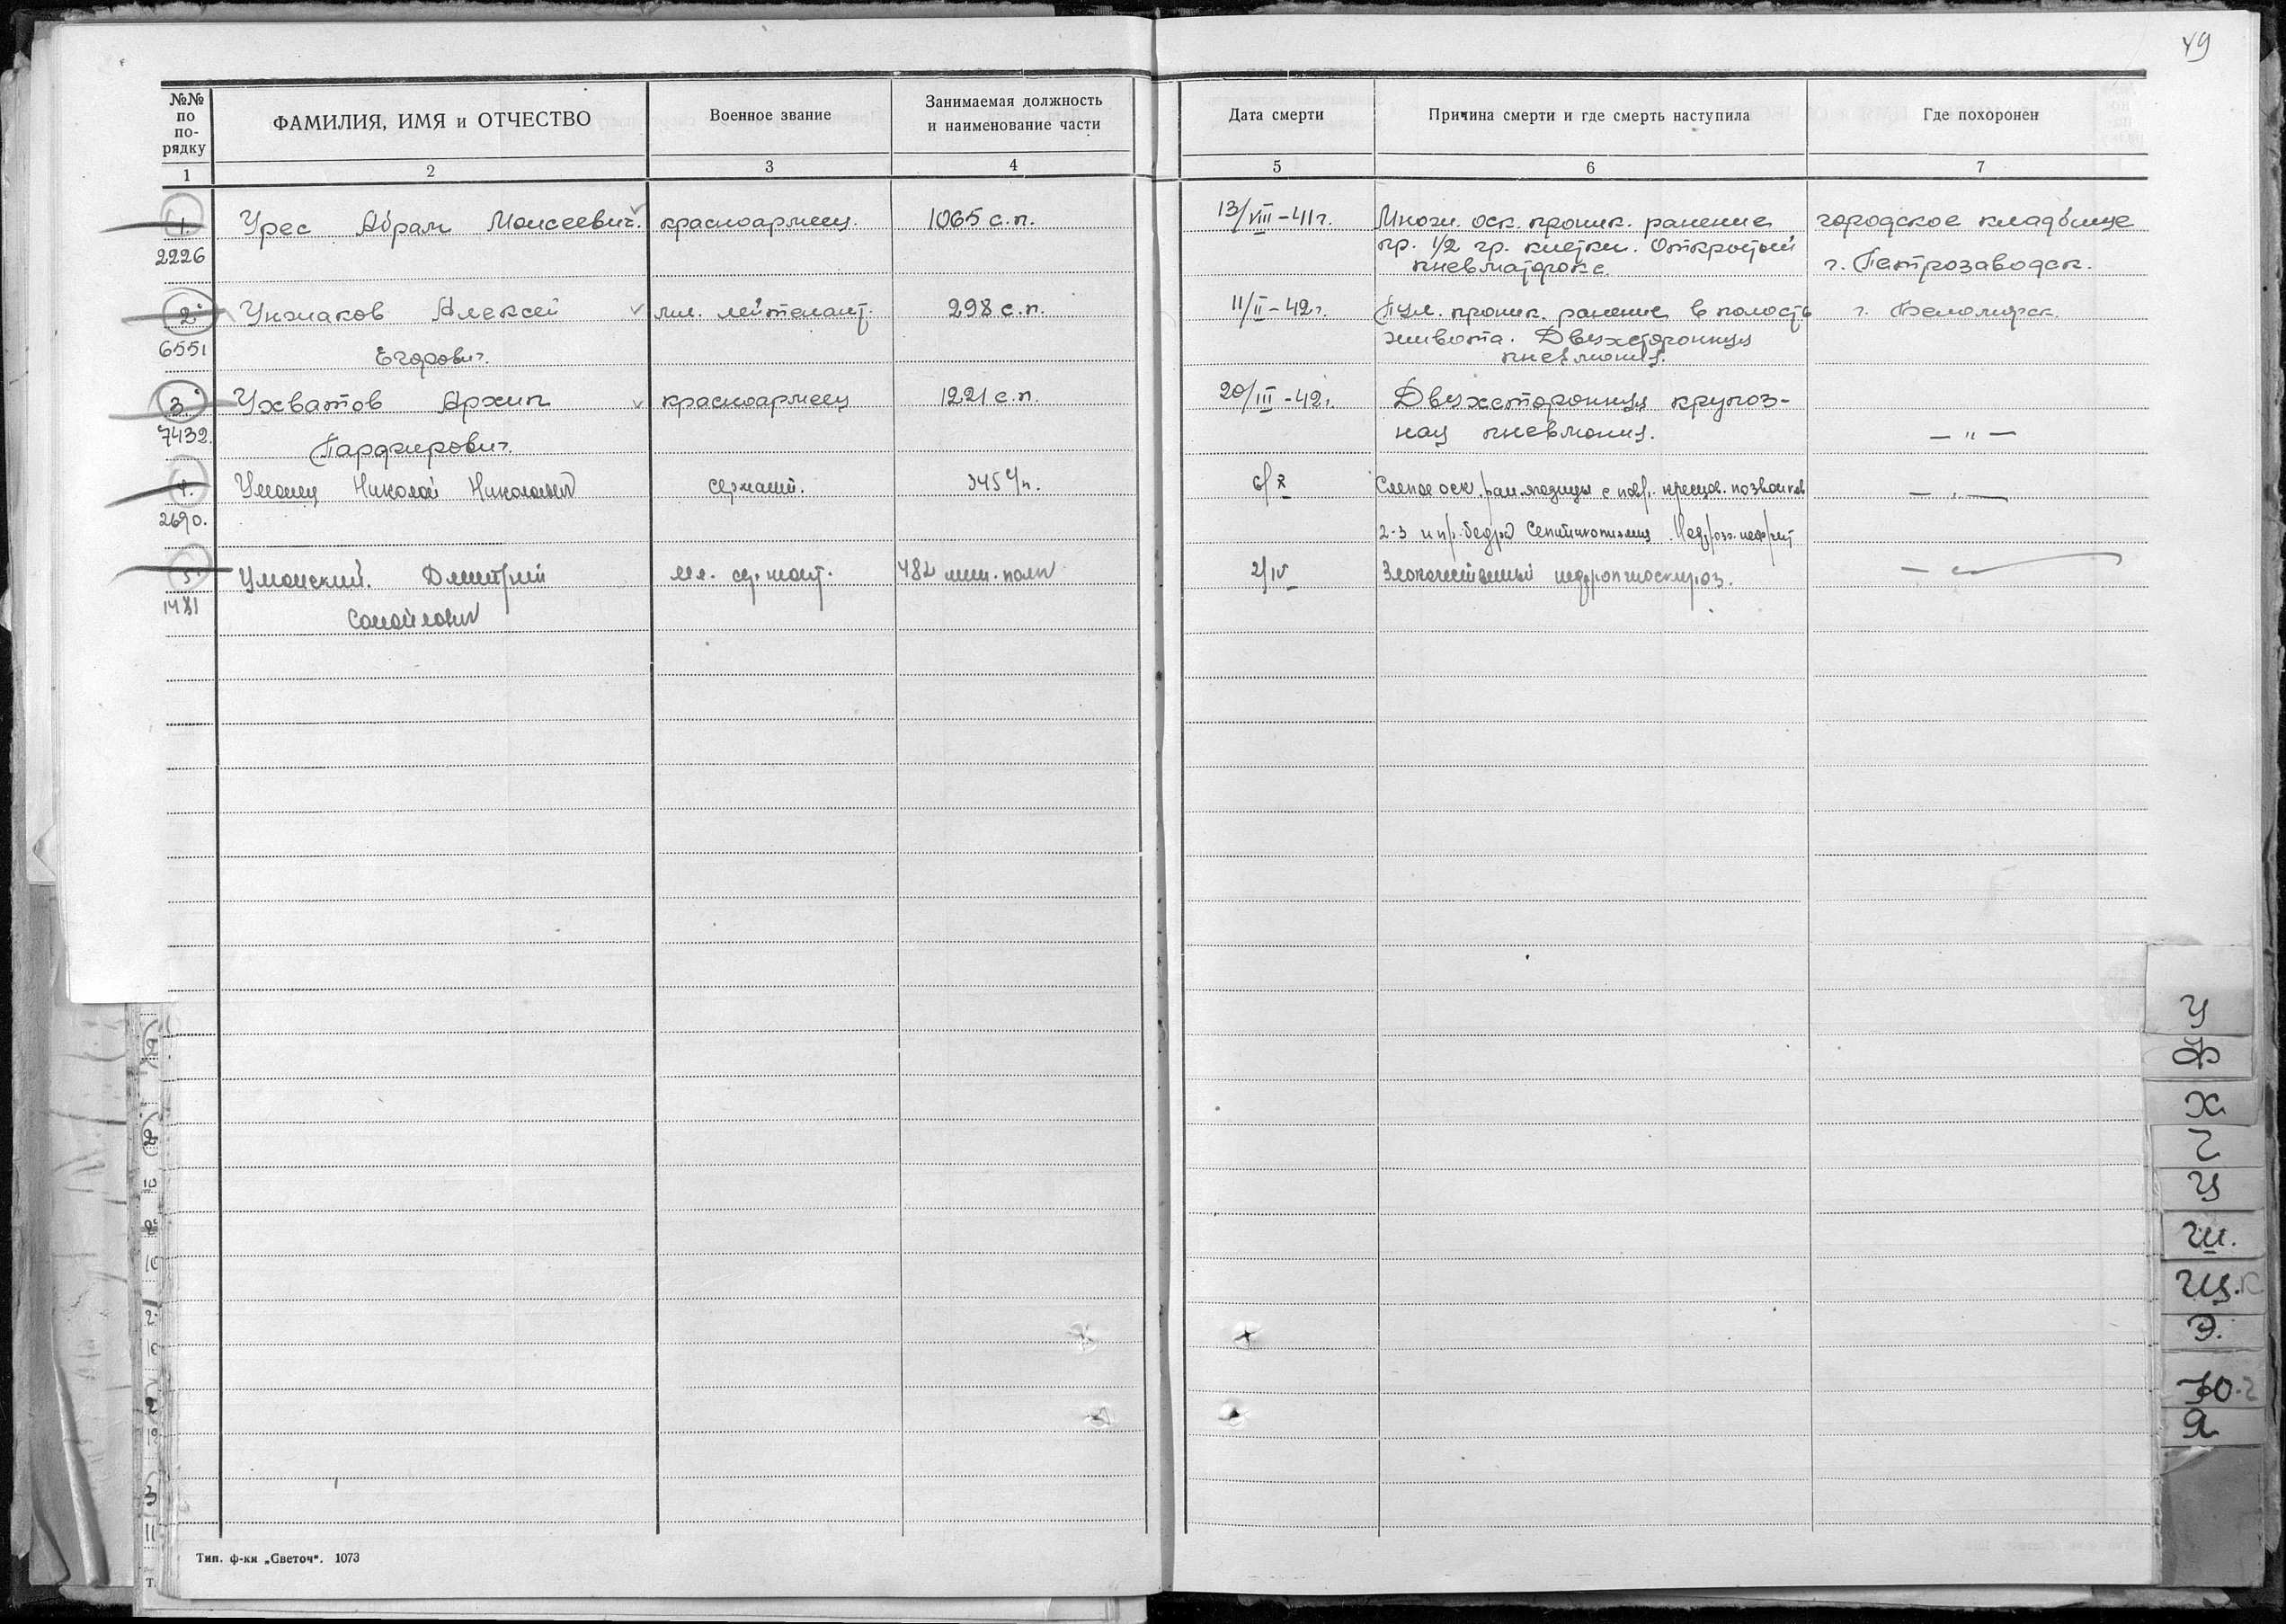 49
№№ по по-рядку
ФАМИЛИЯ, ИМЯ и ОТЧЕСТВО
Военное звание
Занимаемая должность
и наименование части
Дата смерти
Причина смерти и где смерть наступила
Где похоронен
1 2 3 4 5 6 7
1. Урес Абрам Моисеевич. красноармеец. 1065 с.п. 13/VIII-41г. Множ. оск. проник. ранение городское кладбище
2226 пр. 1/2 гр. клетки. Открытый
пневматоракс. г. Петрозаводск.
2. Унжаков Алексей мл. лейтенант. 298 с.п. 11/II-42г. Пул. проник. ранение в полость г. Беломорск.
6551 живота. Двухсторонняя
Егорович. пневмония.
3. Ухватов Архип красноармеец 1221 с.п. 20/III-42г. Двухсторонняя крупоз-
7432. Парфирович. ная пневмония. — " —
4. Уманец Николай Николаевич сержант. 6/X Слепое оск. ран. ягодицы с повр. крестцов. позвонков — " —
2690. 2-3 и пр. бедра Септикопиемия
5 Уманский Дмитрий мл. сержант. 482 мин. полк 2/IV Злокачественный —
1481
Самойлович
У
Ф
Х
Ч
Ц
Ш.
Щ.
Э.
Ю
Я
Тип. ф-ки „Светоч“. 1073